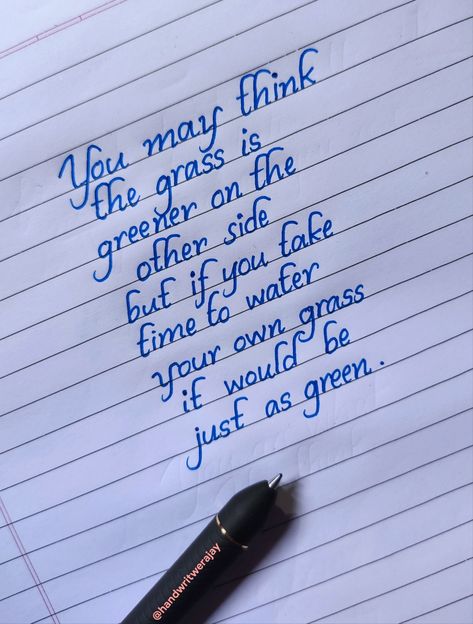 You may think
the grass is
greener on the
other side
but if you take
time to water
your own grass
it would be
just as green.
@handwritwerajay